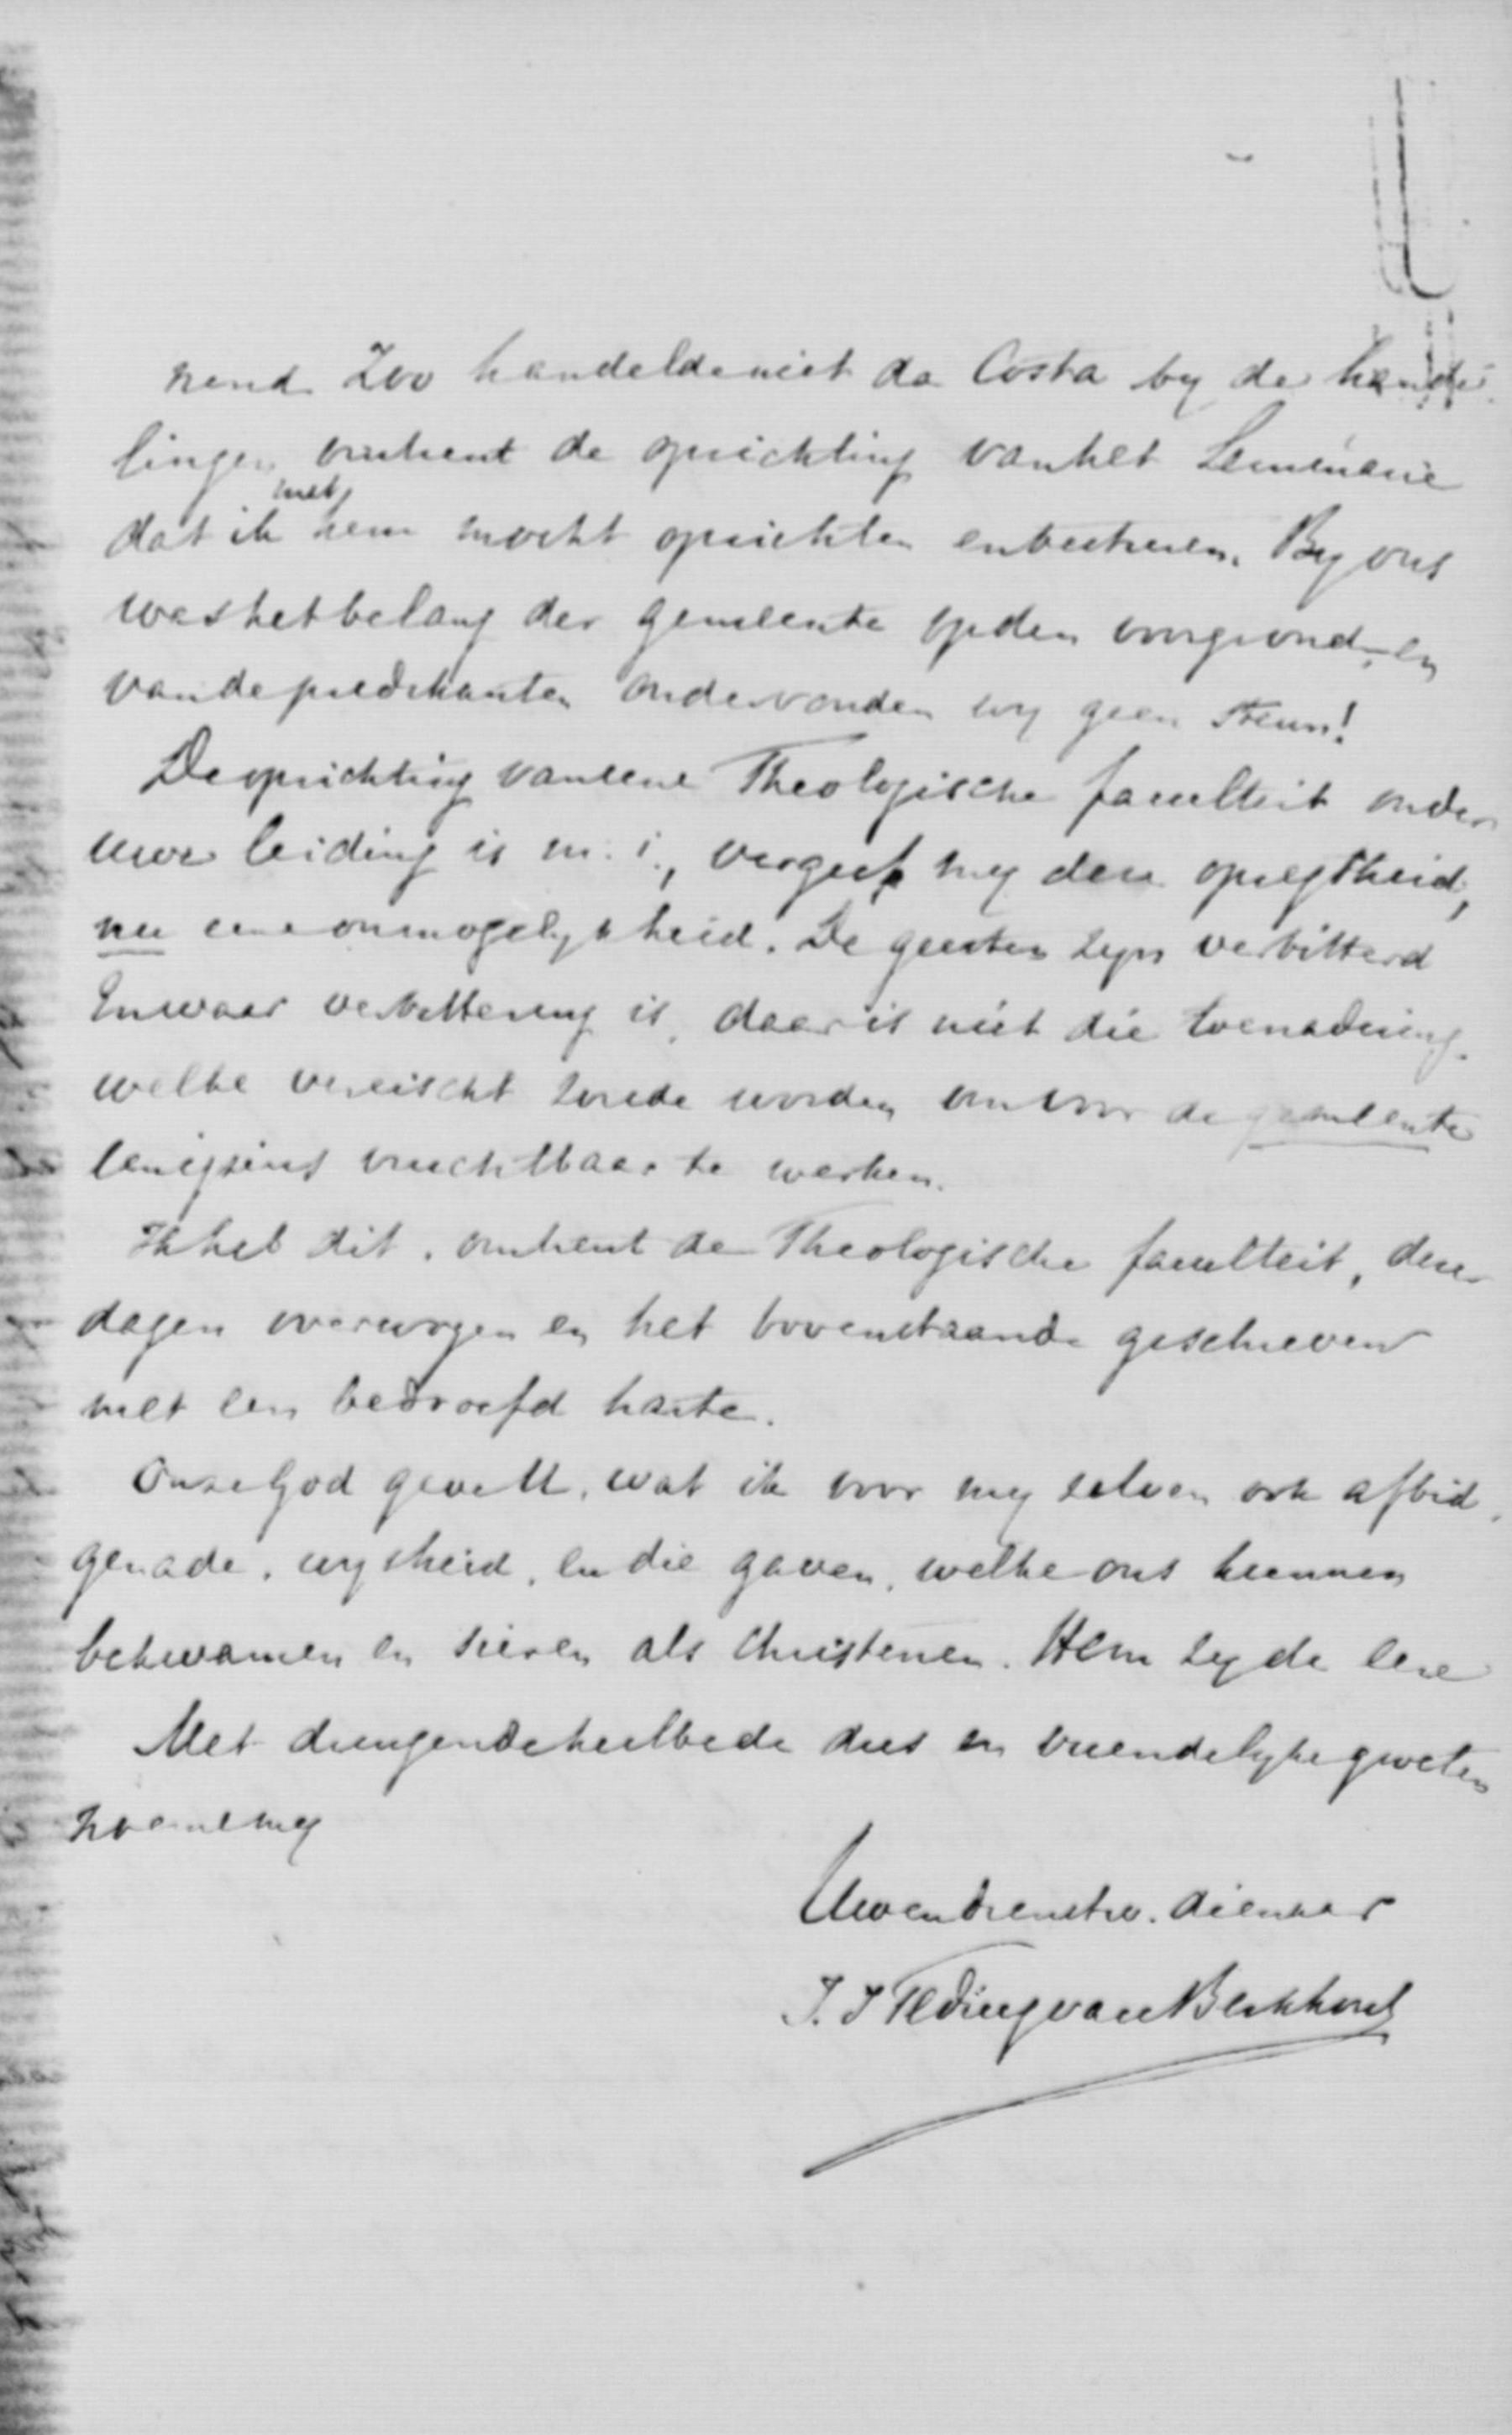 nend Zoo handelde niet da Costa by de hande
lingen omtrent de oprichting van het Seminarie
dat ik met hem mocht oprichten en besturen. By ons
was het belang der gemeente op den voorgrond, en
van de predikanten ondervonden wy geen steun!
De oprichting van eene Theologische faculteit onder
uwe leiding is m. i., vergeef my deze opregtheid,
nu eene onmogelykheid. De geesten zyn verbitterd
En waar verbittering is, daar is niet die toenadering
welke vereischt zoude worden om voor de gemeente
eenigzins vruchtbaar te werken.
Ik heb dit, omtrent de Theologische faculteit, dezer
dagen overwogen en het bovenstaande geschreven
met een bedroefd harte.
Onze God geve U, wat ik voor my zelven ook afbid,
genade, wysheid, en die gaven, welke ons kunnen
bekwamen en sieren als Christenen. Hem zy de eere
Met dringende heilbede dus en vriendelyke groeten
noem ik my
Uwen dienstw. dienaar
J. J Teding van Berkhout